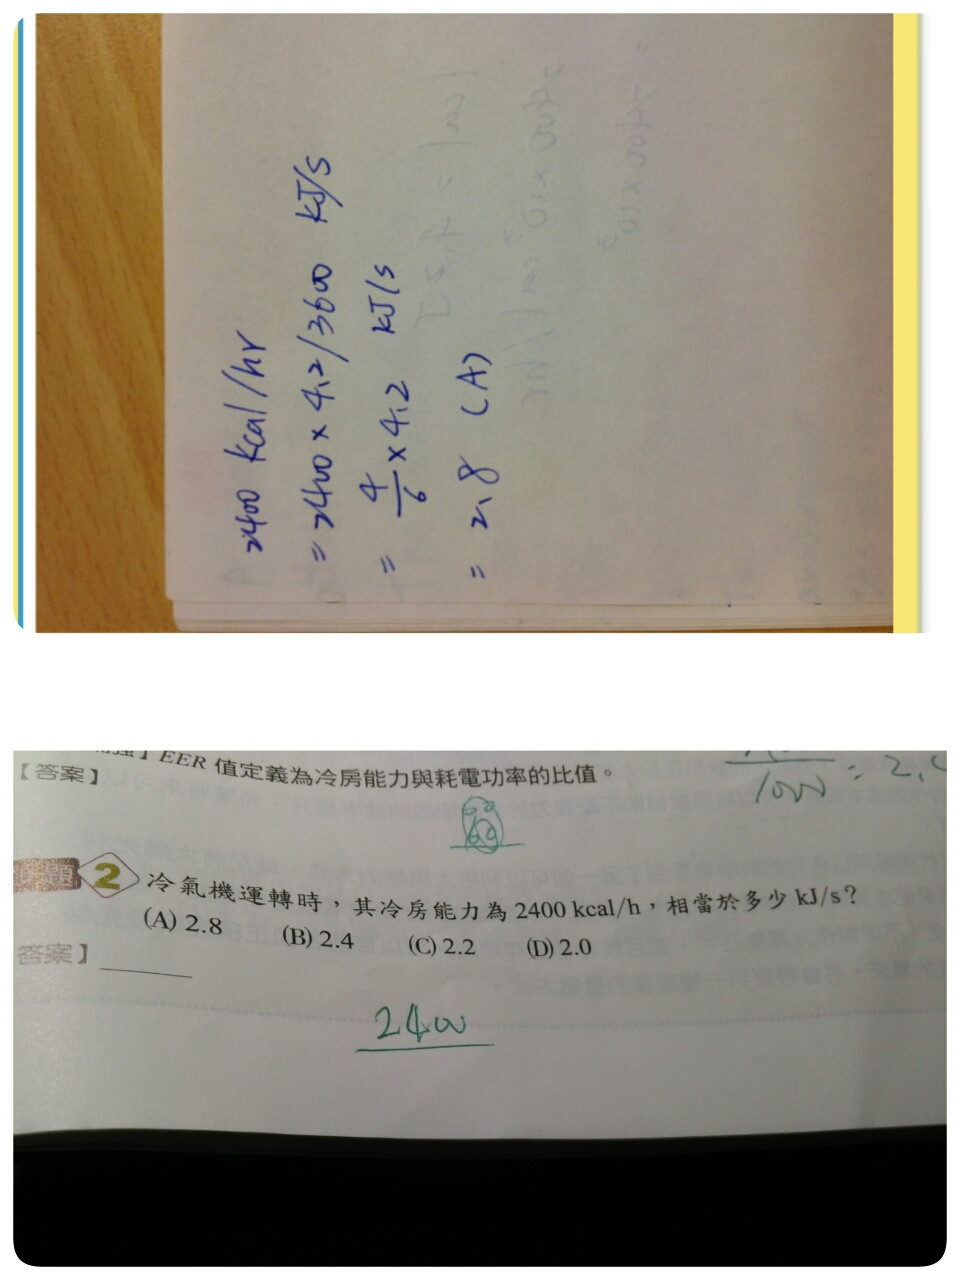 2400 kcal/hr
= 2400 × 4.2/3600 kJ/s
= 4/6 × 4.2 kJ/s
= 2.8 (A)
】EER 值定義為冷房能力與耗電功率的比值。
【答案】
1000 = 2.
2 冷氣機運轉時，其冷房能力為 2400 kcal/h，相當於多少 kJ/s？
(A) 2.8 (B) 2.4 (C) 2.2 (D) 2.0
答案】
2400